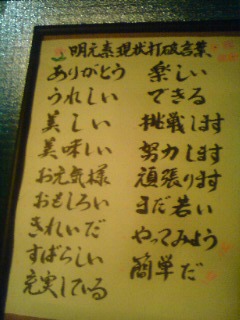 明元素現状打破言葉
ありがとう
うれしい
美しい
美味しい
お元気様
おもしろい
きれいだ
すばらしい
充実している
楽しい
できる
挑戦します
努力します
頑張ります
まだ若い
やってみよう
簡単だ